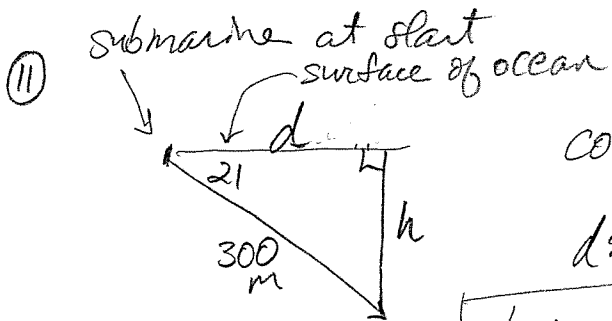 11
submarine at start
surface of ocean
d
21
300
m
h
co
d=